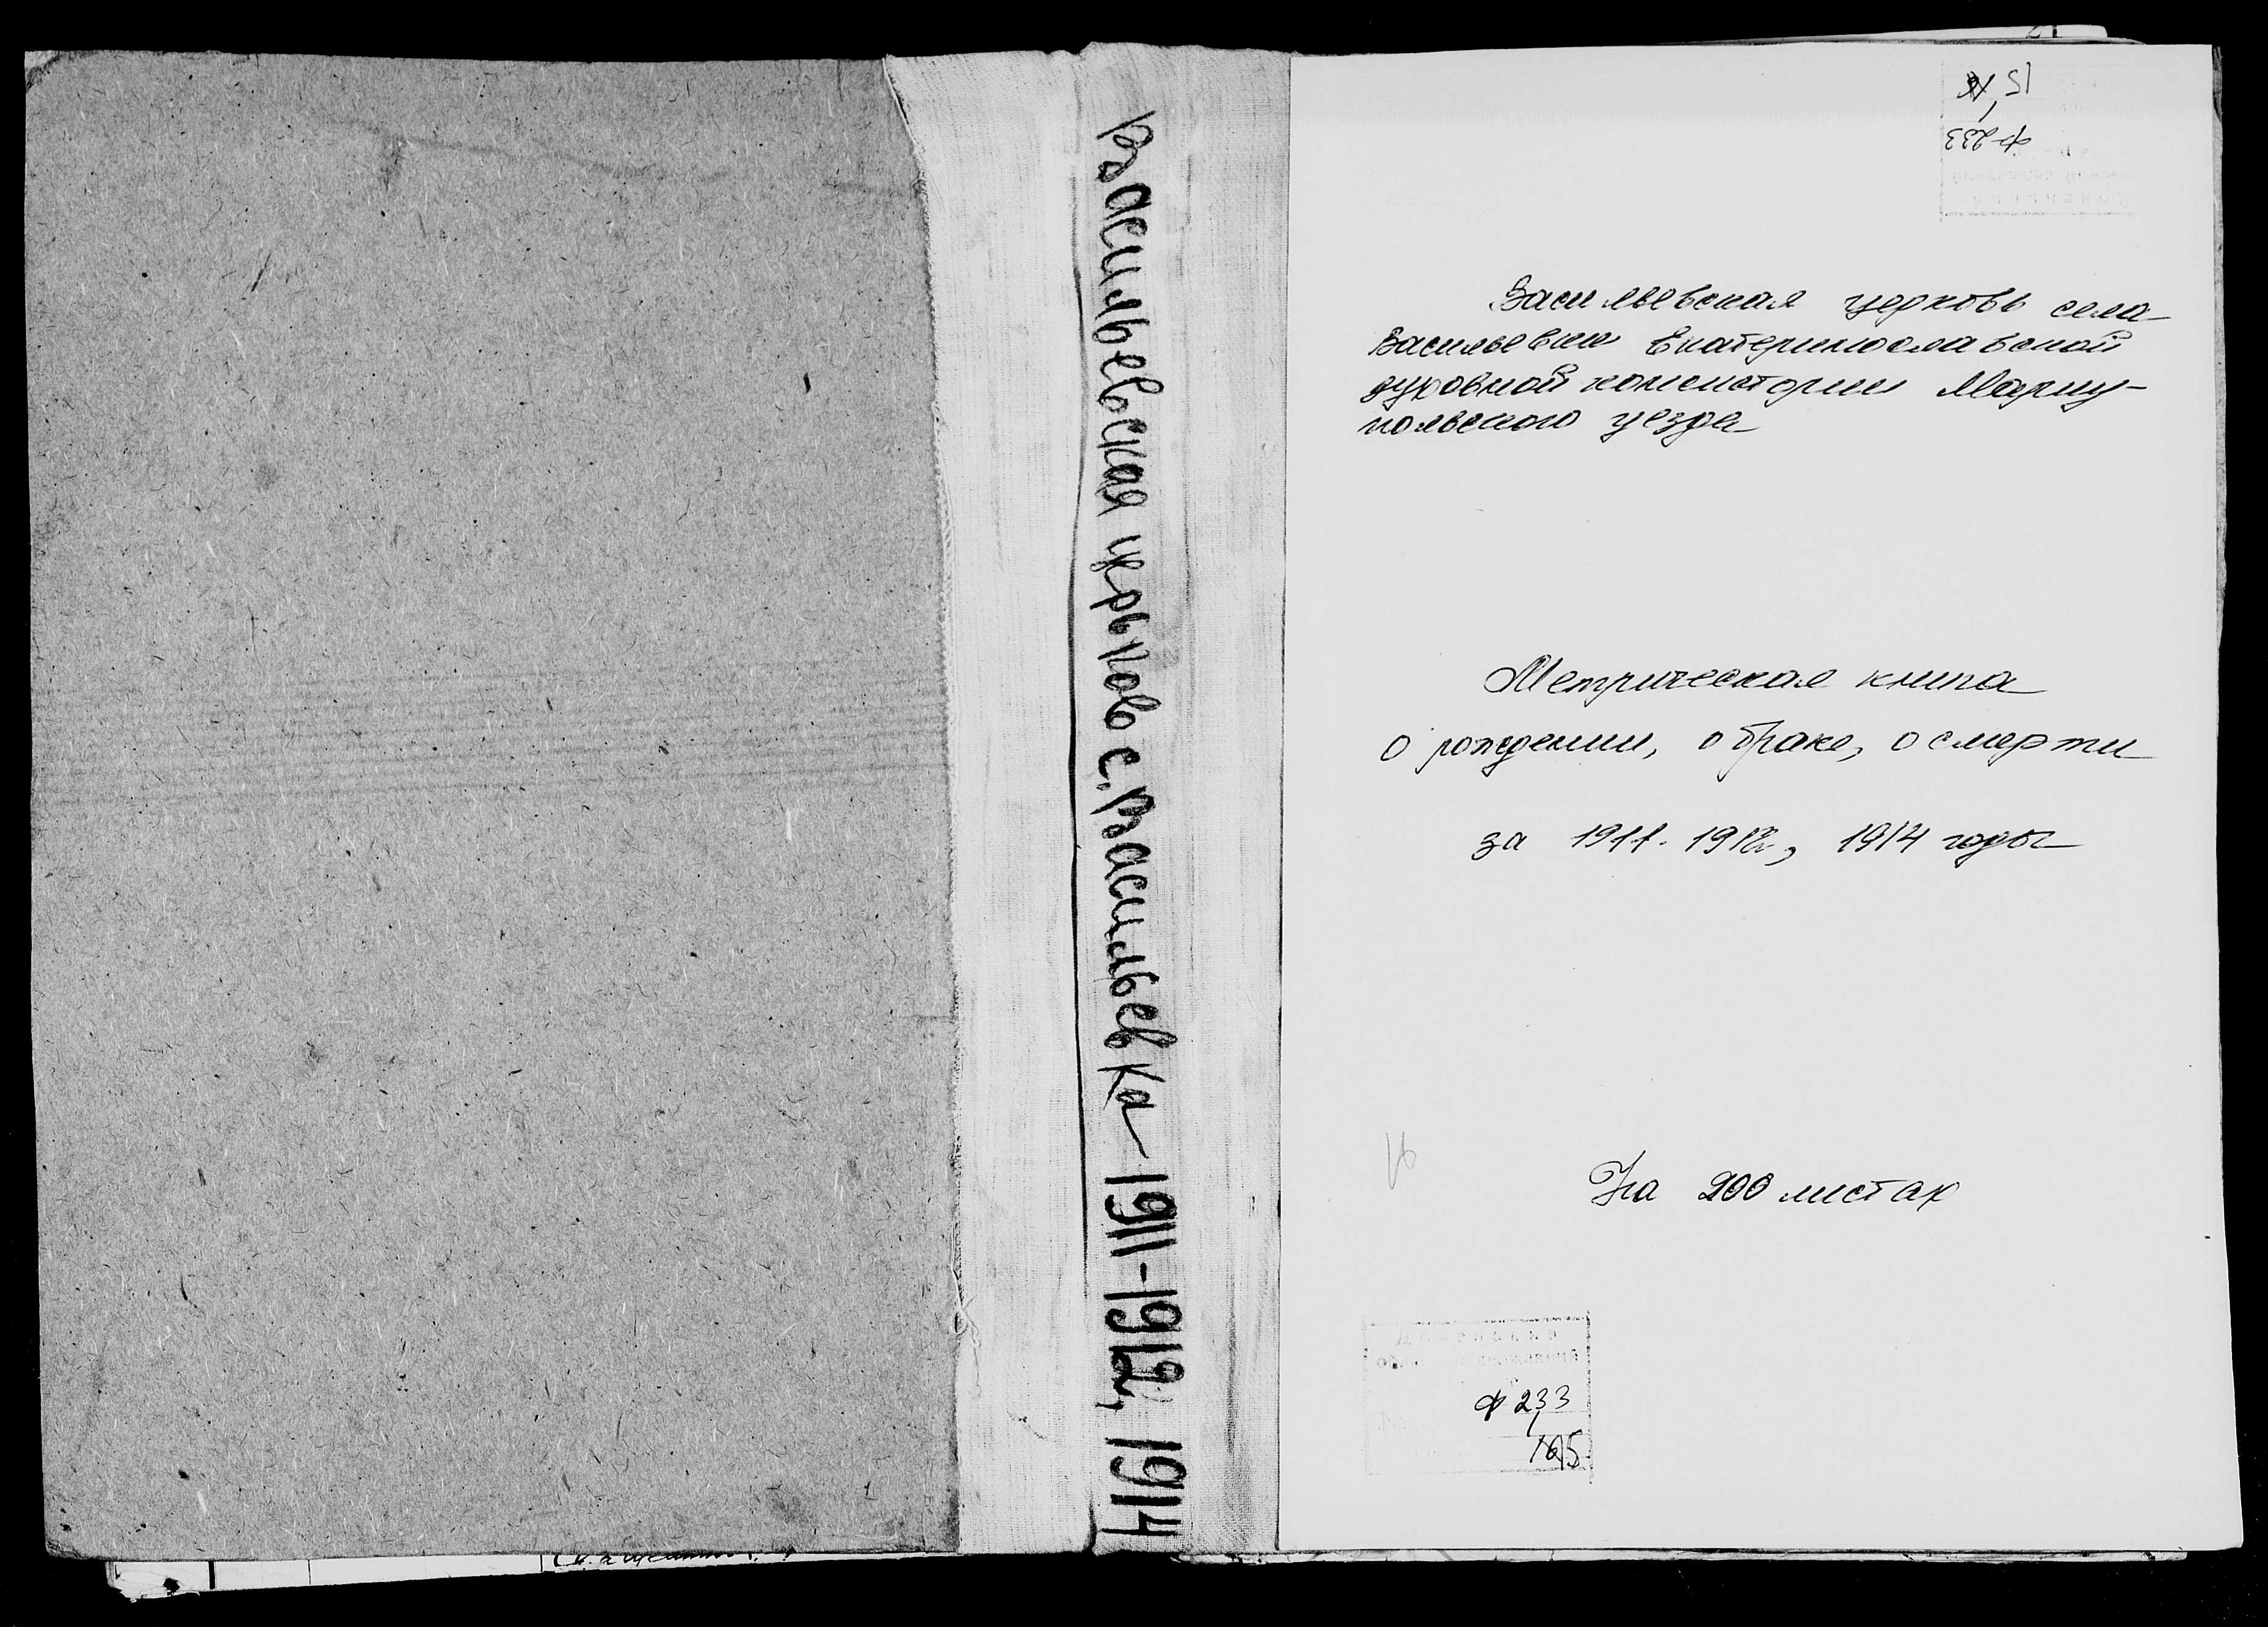 Васильевская церьковь с. Васильевка 1911-1912, 1914
Васильевская церковь села
Васильевки Екатеринославской
духовной консистории Мариу-
польского уезда
Метрическая книга
о рождении, о браке, о смерти
за 1911-1912, 1914 годы
На 200 листах
Ф 233
165
ф-233